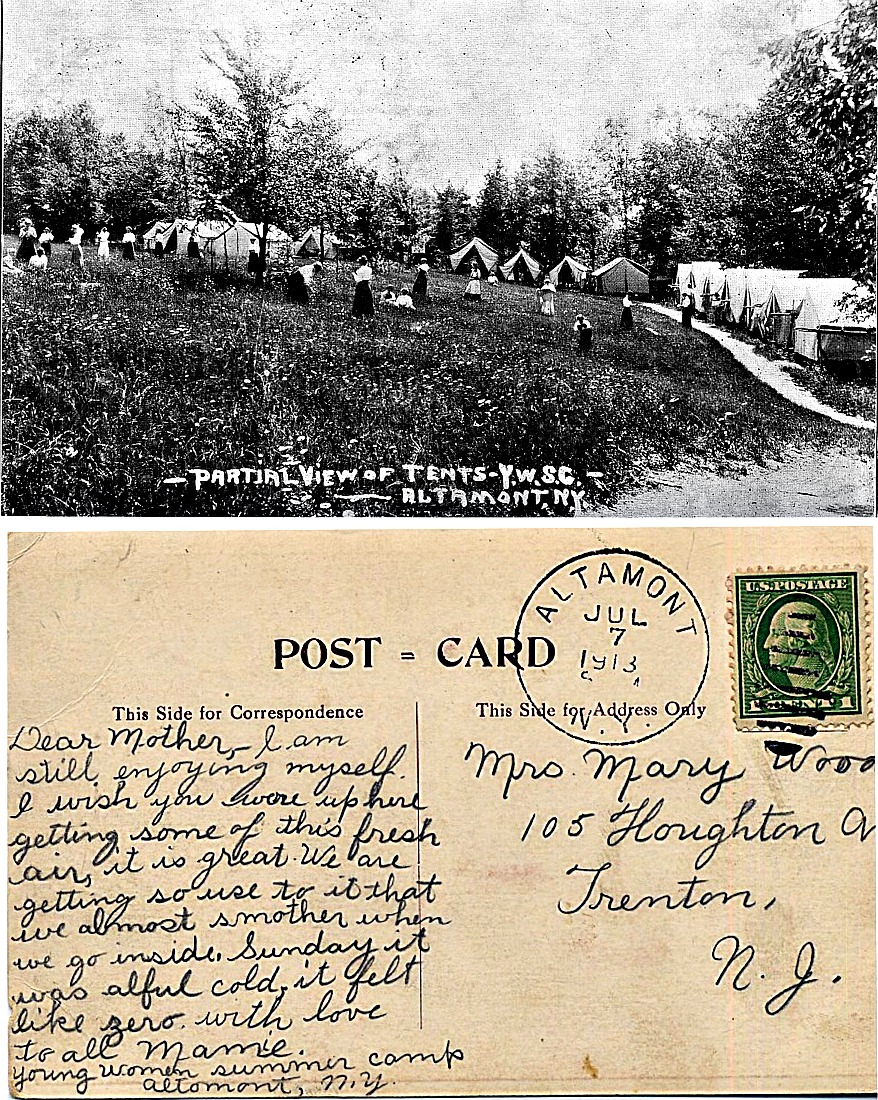 - PARTIAL VIEW OF TENTS - Y.W.S.C. -
ALTAMONT, NY.
ALTAMONT
JUL
7
1913
N.Y.
U.S. POSTAGE
1
1
POST = CARD
This Side for Correspondence
This Side for Address Only
Dear Mother, I am
still enjoying myself.
I wish you were up here
getting some of this fresh
air, it is great. We are
getting so use to it that
we almost smother when
we go inside. Sunday it
was alful cold, it felt
like zero. with love
to all Mamie.
young women summer camp
altomont, N.Y.
Mrs. Mary Wood
105 Houghton A
Trenton,
N. J.